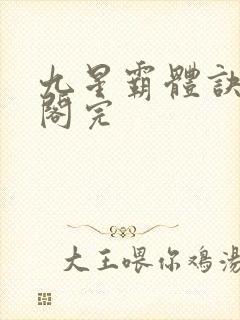 九星霸體訣
閣完
大王喂你鸡湯